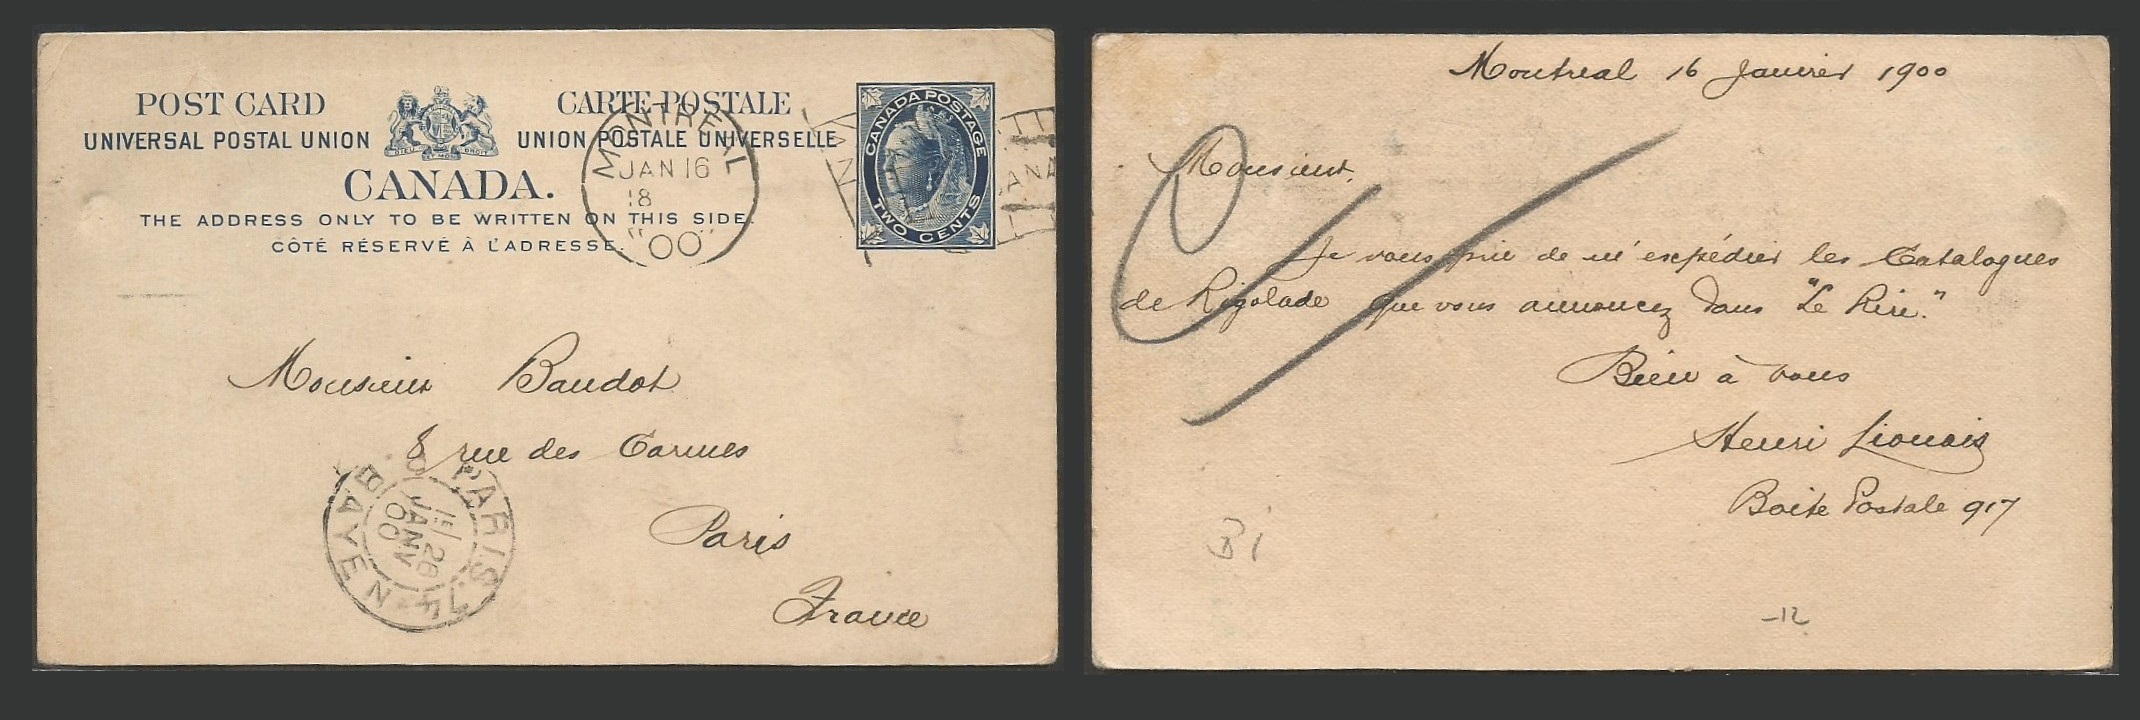 POST CARD
CARTE POSTALE
UNIVERSAL POSTAL UNION
UNION POSTALE UNIVERSELLE
DIEU ET MON DROIT
CANADA.
THE ADDRESS ONLY TO BE WRITTEN ON THIS SIDE.
CÔTÉ RÉSERVÉ À L'ADRESSE.
MONTREAL
JAN 16
18
"00"
CANADA POSTAGE
TWO CENTS
Monsieur Baudot
8 rue des Carmes
Paris
France
PARIS
28
JANV
00
Montreal 16 Janvier 1900
Monsieur,
Je vous prie de m'expédier les Catalogues
de Rigolade que vous annoncez dans "Le Rire."
Bien à vous
Henri Lionais
Boite Postale 917
B1
-12